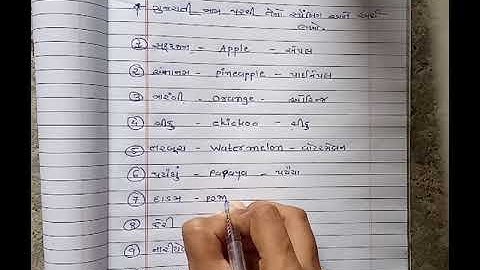 * ગુજરાતી નામ પરથી તેનો સ્પેલિંગ અને અર્થ
લખો.
① સફરજન - Apple - એપલ
② અનાનસ - pineapple - પાઈનેપલ
③ નારંગી - orange - ઓરેન્જ
④ ચીકુ - chickoo - ચીકુ
⑤ તરબુચ - watermelon - વોટરમેલન
⑥ પપૈયું - papaya - પપૈયા
⑦ દાડમ - pom
⑧ કેરી
⑨